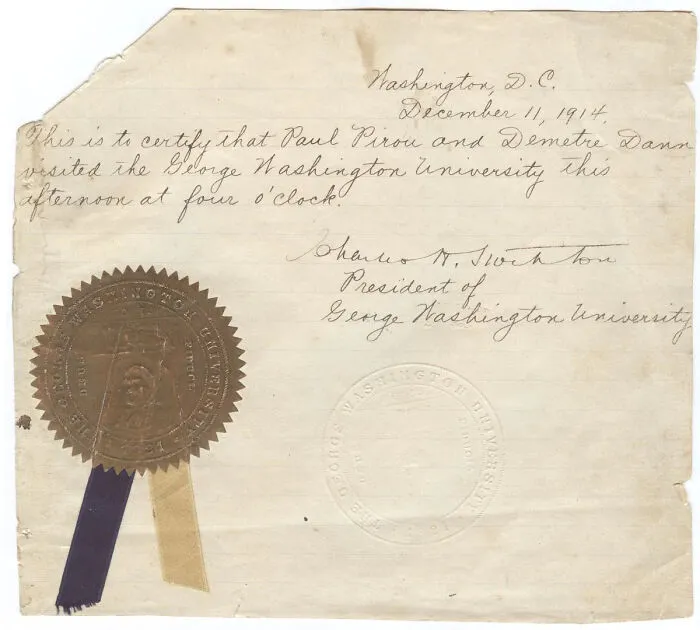 Washington, D.C.
December 11, 1914.
This is to certify that Paul Pirou and Demetre Dann
visited the George Washington University this
afternoon at four o'clock.
Charles H. Stockton
President of
George Washington University
THE GEORGE WASHINGTON UNIVERSITY
THE GEORGE WASHINGTON UNIVERSITY